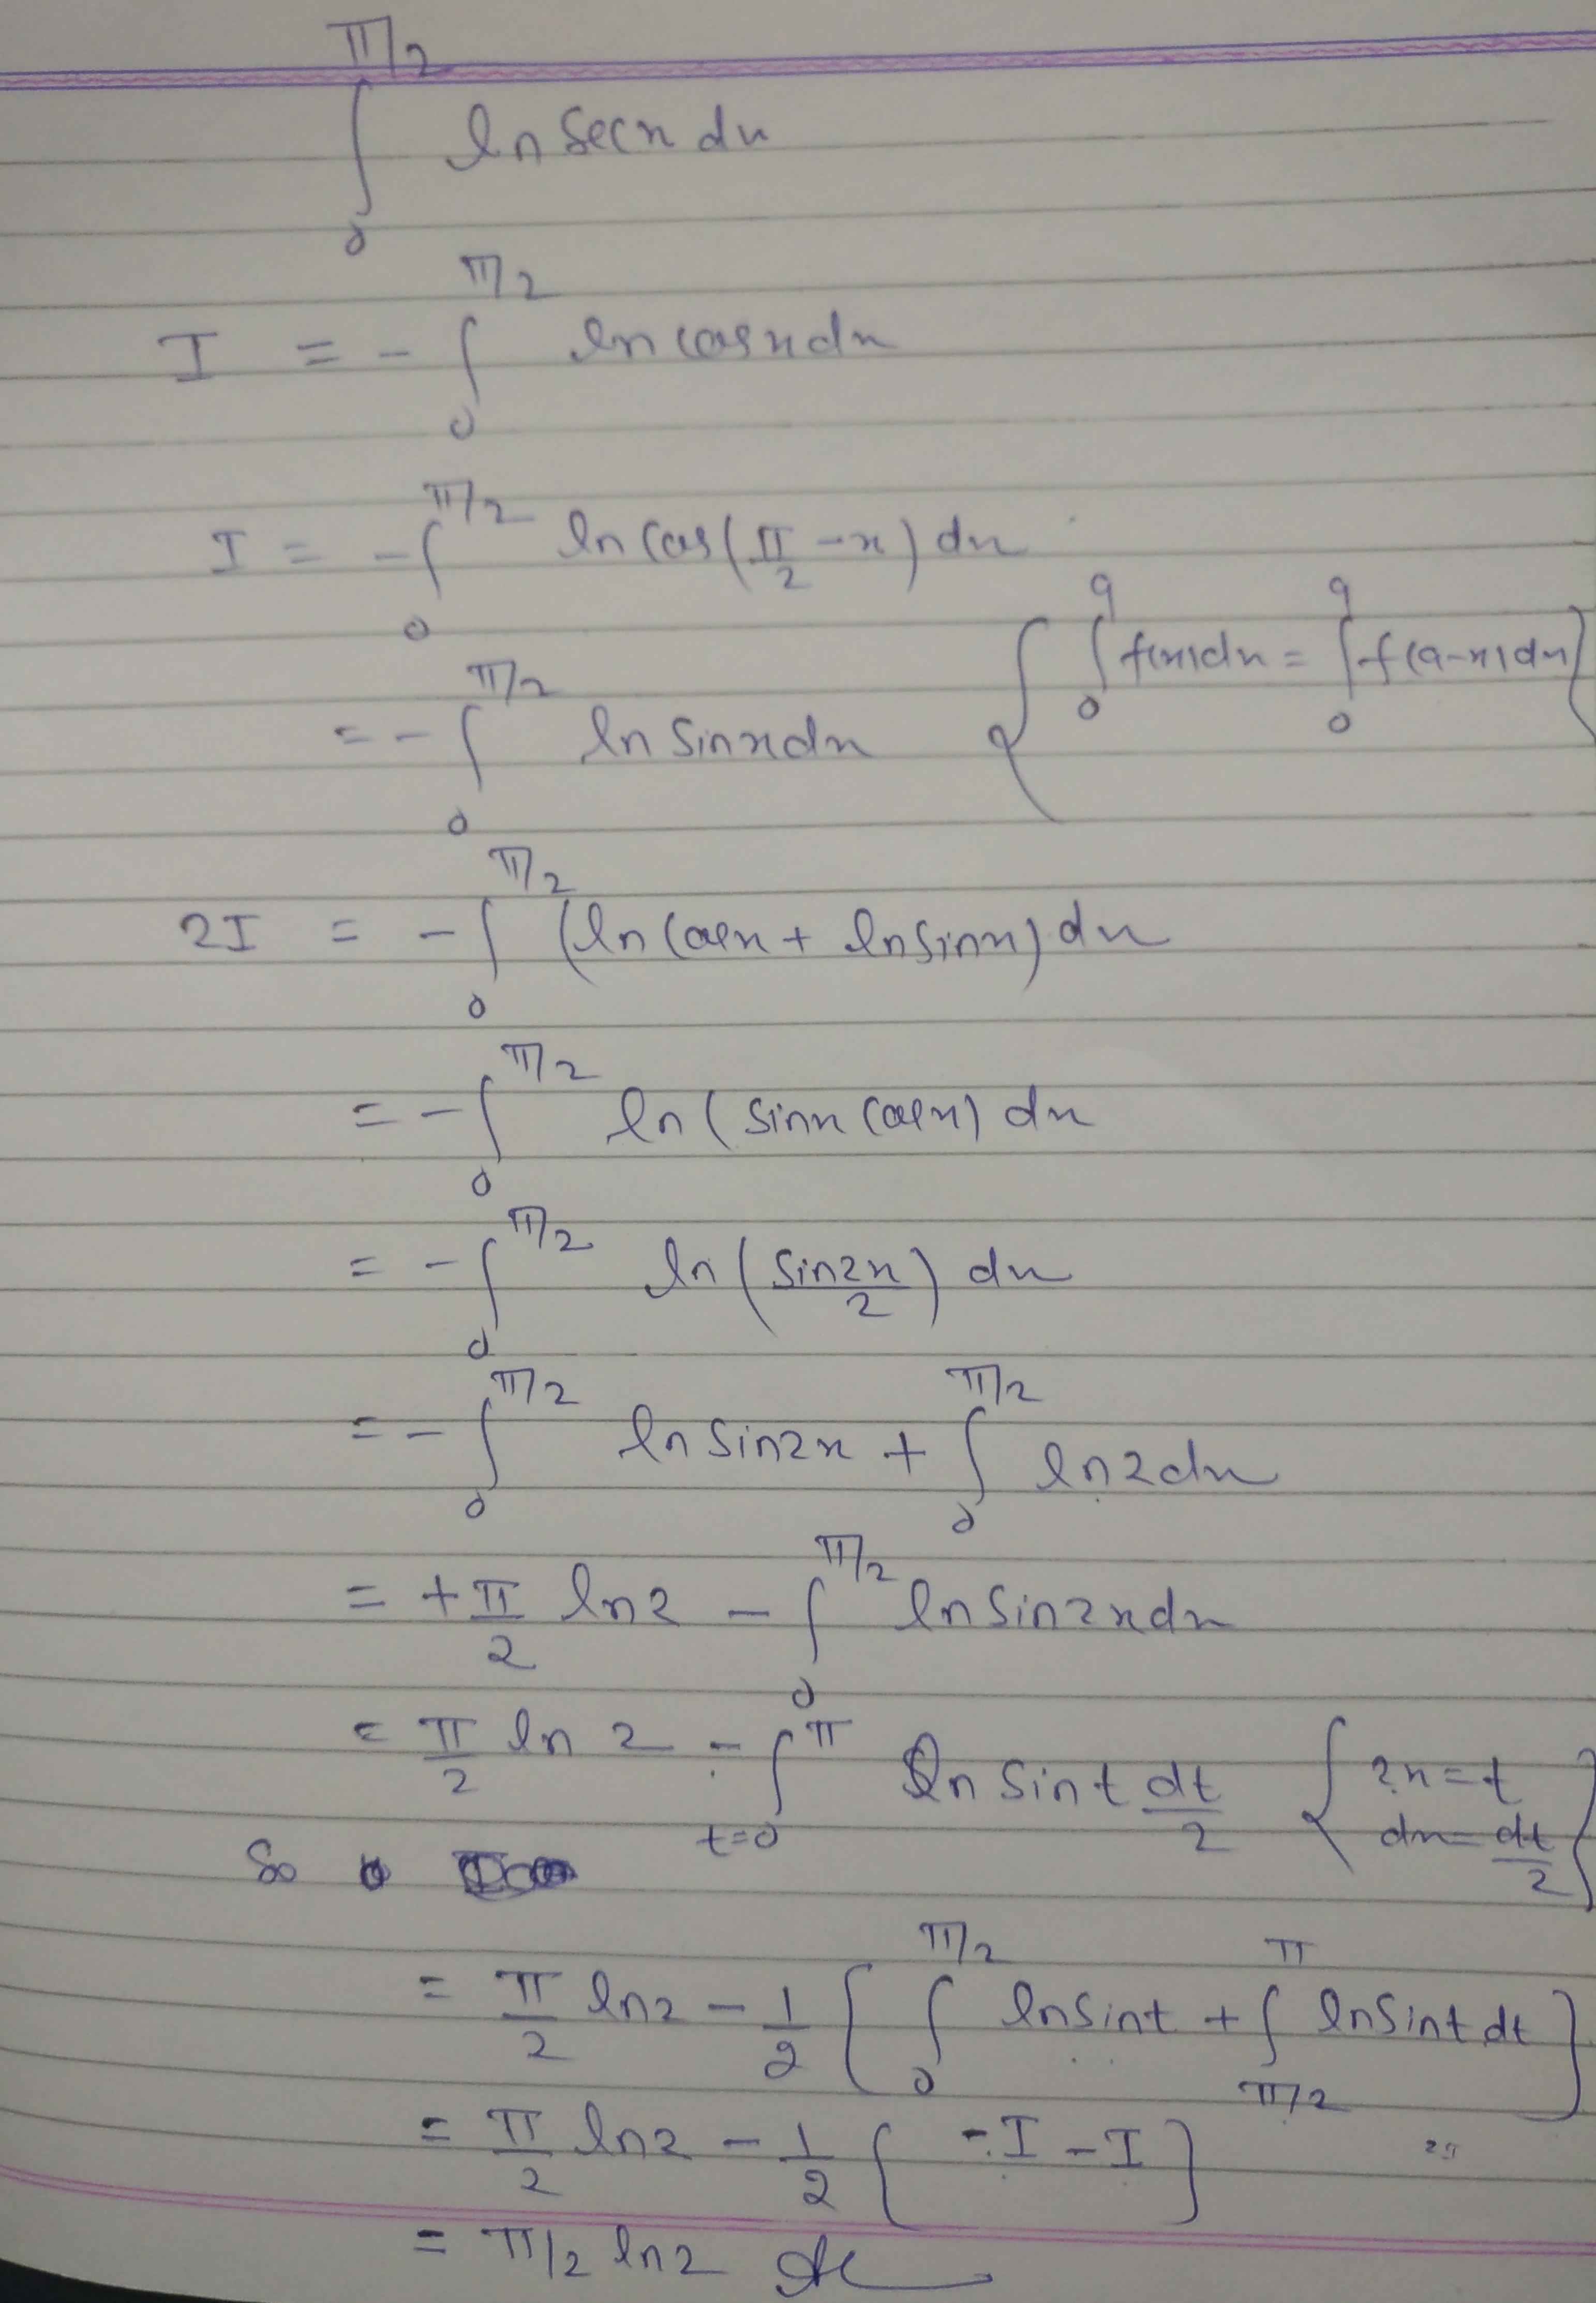 ∫₀^{π/2} ln sec x dx
I = -∫₀^{π/2} ln cos x dx
I = -∫₀^{π/2} ln cos(π/2 - x) dx
= -∫₀^{π/2} ln sin x dx { ∫₀^a f(x) dx = ∫₀^a f(a-x) dx }
2I = -∫₀^{π/2} (ln cos x + ln sin x) dx
= -∫₀^{π/2} ln(sin x cos x) dx
= -∫₀^{π/2} ln(sin2x/2) dx
= -∫₀^{π/2} ln sin2x + ∫₀^{π/2} ln2 dx
= +π/2 ln2 - ∫₀^{π/2} ln sin2x dx
= π/2 ln 2 - ∫_{t=0}^{π} ln sin t dt/2 { 2x = t dx = dt/2 }
So
= π/2 ln2 - 1/2 { ∫₀^{π/2} ln sin t + ∫_{π/2}^{π} ln sin t dt }
= π/2 ln2 - 1/2 { -I - I }
= π/2 ln2